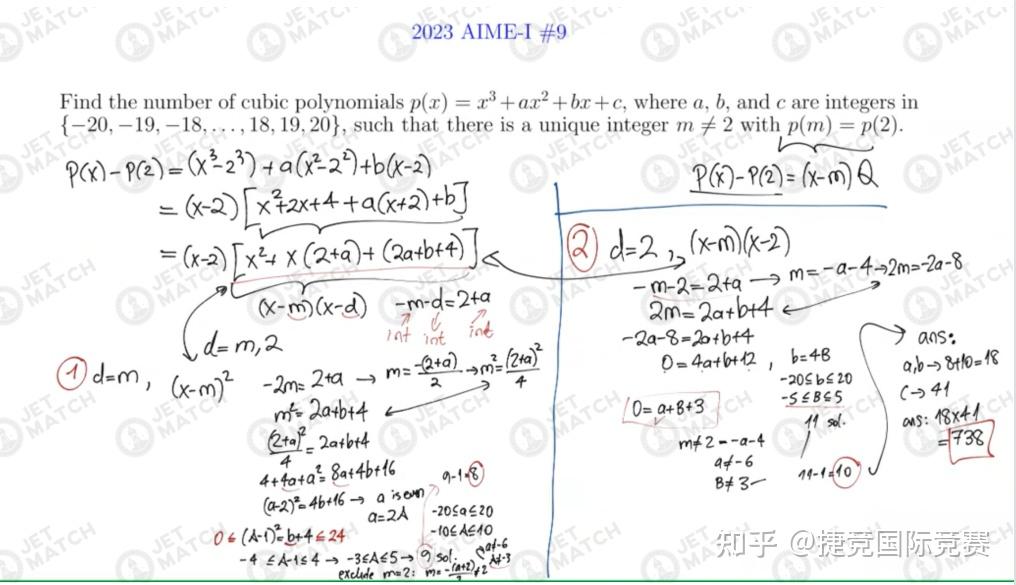 2023 AIME-I #9
Find the number of cubic polynomials p(x) = x³ + ax² + bx + c, where a, b, and c are integers in
{−20, −19, −18, . . . , 18, 19, 20}, such that there is a unique integer m ≠ 2 with p(m) = p(2).
P(x)-P(2) = (x³-2³) + a(x²-2²) + b(x-2)
= (x-2)[x²+2x+4+a(x+2)+b]
= (x-2)[x²+x(2+a)+(2a+b+4)]
(x-m)(x-d) -m-d=2+a
int int int
d=m,2
① d=m, (x-m)² -2m=2+a → m=-(2+a)/2 → m²=(2+a)²/4
m²=2a+b+4
(2+a)²/4=2a+b+4
4+4a+a²=8a+4b+16
(a-2)²=4b+16 → a is even
a=2A
9-1=8
-20≤a≤20
-10≤A≤10
0≤(A-1)²=b+4≤24
-4≤A-1≤4 → -3≤A≤5 → 9 sol.
a≠-6
A≠-3
exclude m=2: m=-(a+2)/2≠2
P(x)-P(2)=(x-m)Q
② d=2, (x-m)(x-2)
-m-2=2+a → m=-a-4 → 2m=-2a-8
2m=2a+b+4
-2a-8=2a+b+4
0=4a+b+12, b=4B
-20≤b≤20
-5≤B≤5
0=a+B+3
11 sol.
m≠2=-a-4
a≠-6
B≠3
11-1=10
ans:
a,b → 8+10=18
c → 41
ans: 18×41
=738
JET MATCH
知乎 @捷竞国际竞赛